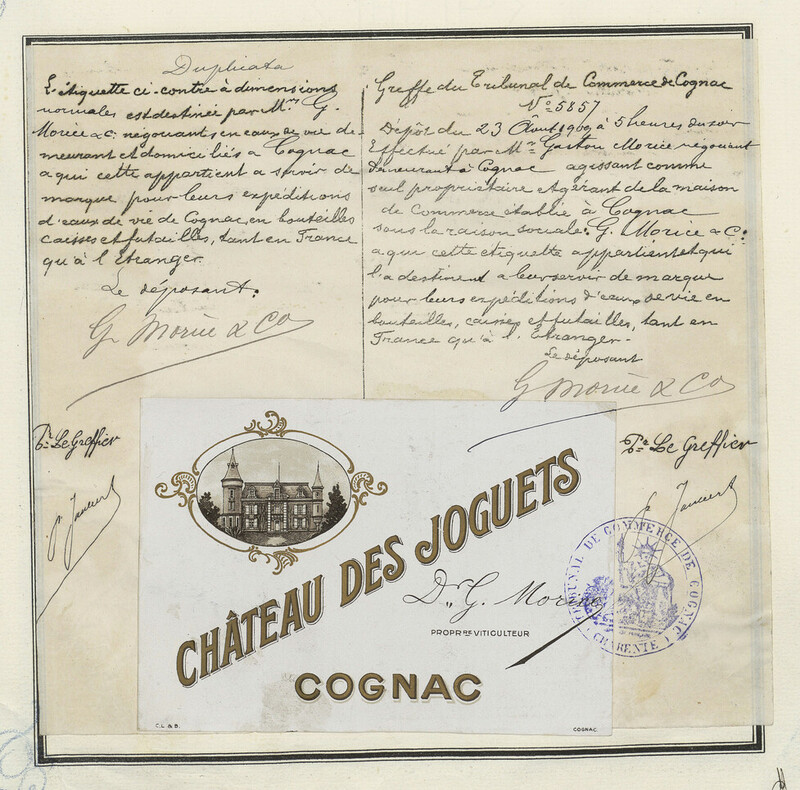 Duplicata
L'étiquette ci-contre à dimensions
normales est destinée par Mrs G.
Morice & Cie négociants en eaux de vie de-
meurant et domiciliés à Cognac
a qui cette appartient a servir de
marque pour leurs expéditions
d'eaux de vie de Cognac, en bouteilles
caisses et futailles, tant en France
qu'à l'Etranger.
Le déposant.
G. Morice & Co
Pr Le Greffier
Greffe du Tribunal de Commerce de Cognac
No 5857
Dépôt du 23 Août 1909 à 5 heures du soir
Effectué par Mr Gaston Morice négociant
Demeurant à Cognac agissant comme
seul propriétaire et gérant de la maison
de Commerce établie à Cognac
sous la raison sociale: G. Morice & Co:
a qui cette etiquette appartient et qui
l'a destinent a leur servir de marque
pour leurs expéditions d'eaux de vie en
bouteilles, caisses et futailles, tant en
France qu'à l'Étranger-
Le déposant
G Morice & Co
Pr Le Greffier
CHÂTEAU DES JOGUETS
Dr G. Morice
PROPRRE VITICULTEUR
COGNAC
C.L. & B.
COGNAC.
TRIBUNAL DE COMMERCE DE COGNAC
CHARENTE